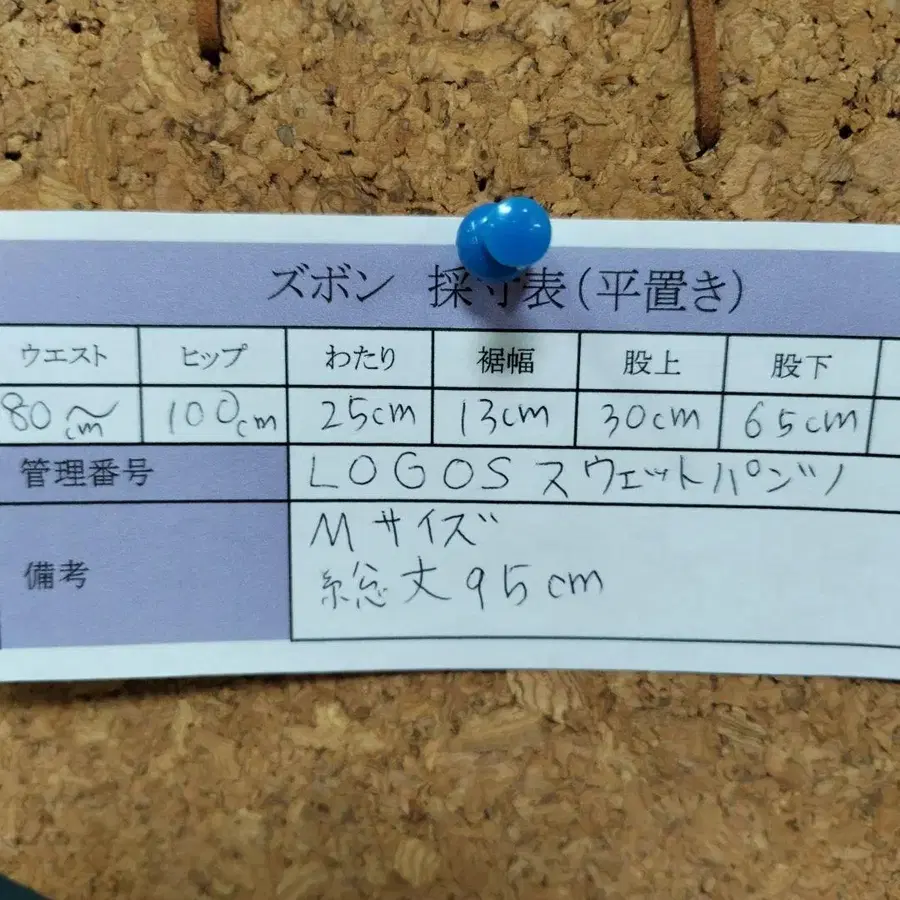 ズボン 採寸表(平置き)
ウエスト ヒップ わたり 裾幅 股上 股下
80〜cm 100cm 25cm 13cm 30cm 65cm
管理番号 LOGOS スウェットパンツ
備考 Mサイズ
総丈95cm